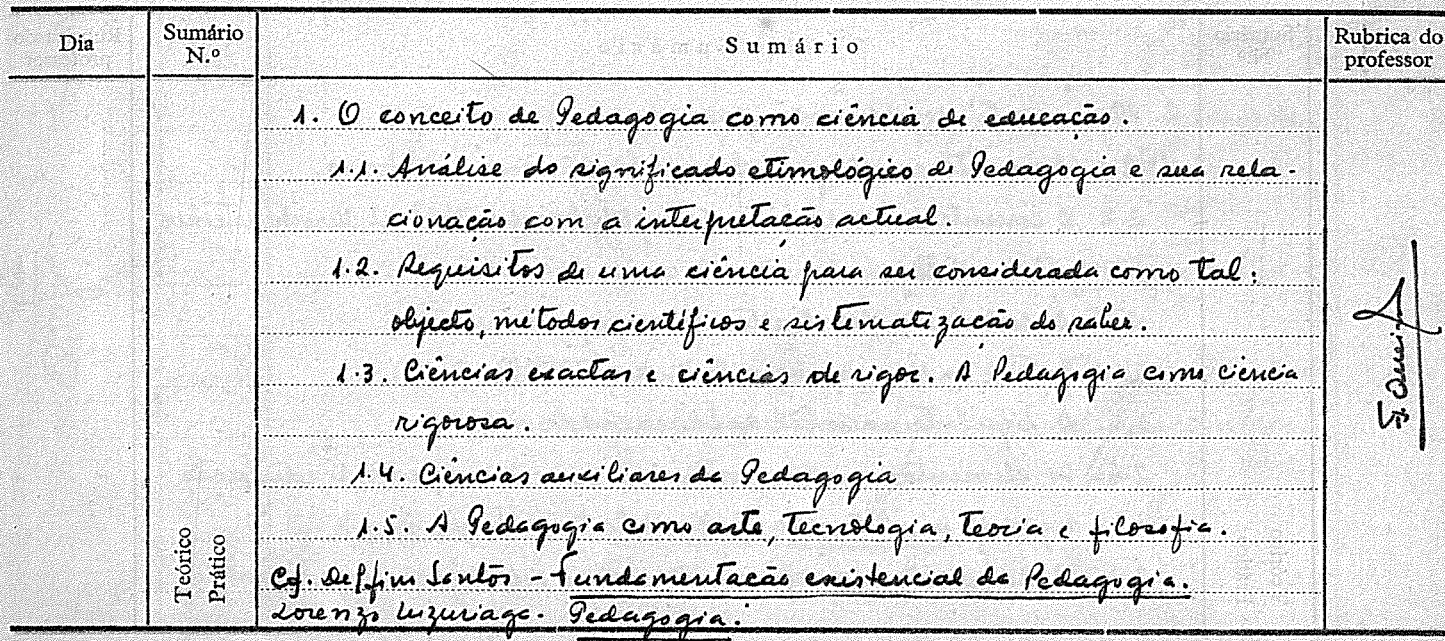 Dia
Sumário
N.º
Sumário
Rubrica do
professor
1. O conceito de Pedagogia como ciência de educação.
1.1. Análise do significado etimológico de Pedagogia e sua rela-
cionação com a interpretação actual.
1.2. Requisitos de uma ciência para ser considerada como tal:
objecto, métodos científicos e sistematização do saber.
1.3. Ciências exactas e ciências de rigor. A Pedagogia como ciência
rigorosa.
1.4. Ciências auxiliares da Pedagogia
1.5. A Pedagogia como arte, tecnologia, teoria e filosofia.
Cf. Delfim Santos - Fundamentação existencial da Pedagogia.
Lorenzo Luzuriaga. Pedagogia.
Teórico
Prático